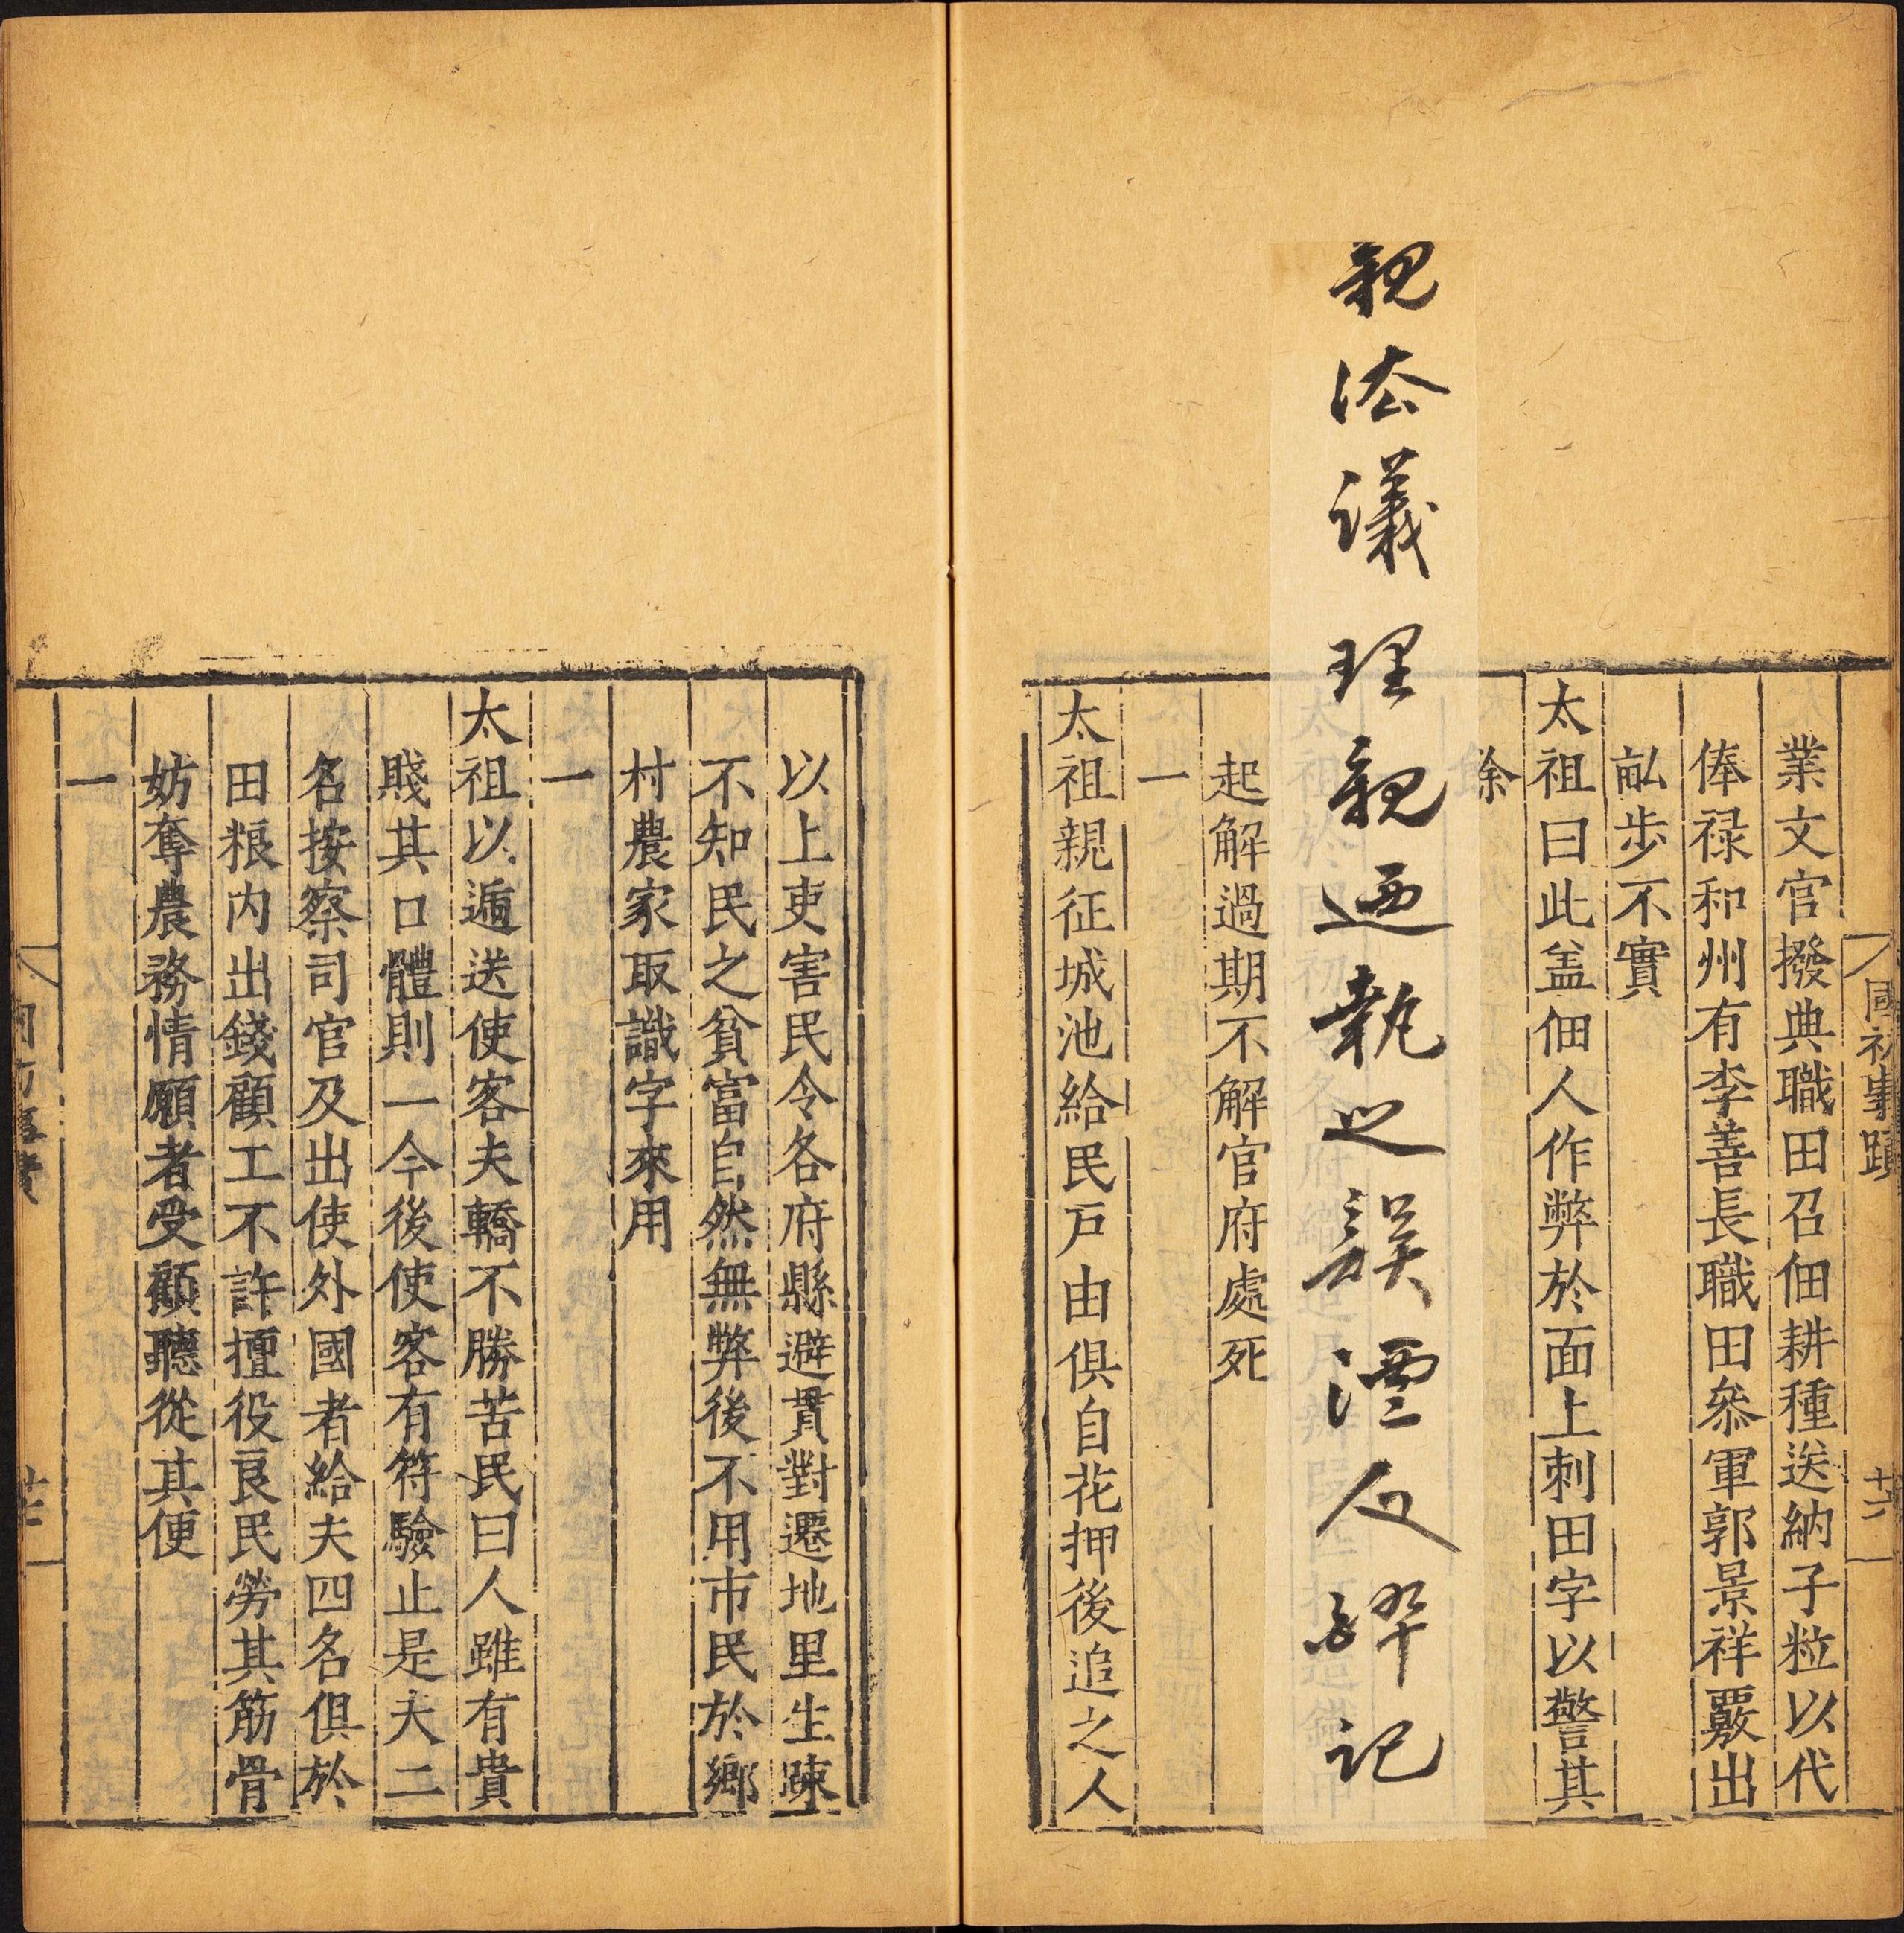 業文官撥典職田召佃耕種送納子粒以代
俸禄和州有李善長職田叅軍郭景祥覈出
畝步不實
太祖曰此盖佃人作弊於面上刺田字以警其
餘
起解過期不解官府處死
一
太祖親征城池給民戸由俱自花押後追之人
國初事蹟
十六
以上吏害民令各府縣避貫對遷地里生踈
不知民之貧富自然無弊後不用市民於鄉
村農家取識字來用
一
太祖以遞送使客夫轎不勝苦民曰人雖有貴
賤其口體則一今後使客有符驗止是夫二
名按察司官及出使外國者給夫四名俱於
田粮内出錢顧工不許擅役良民勞其筋骨
妨奪農務情願者受顧聽從其便
一